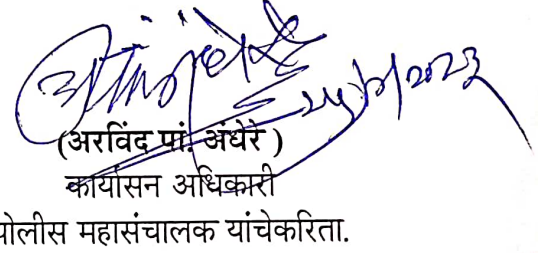 (अरविंद पां. अंधेरे )
कार्यासन अधिकारी
पोलीस महासंचालक यांचेकरिता.